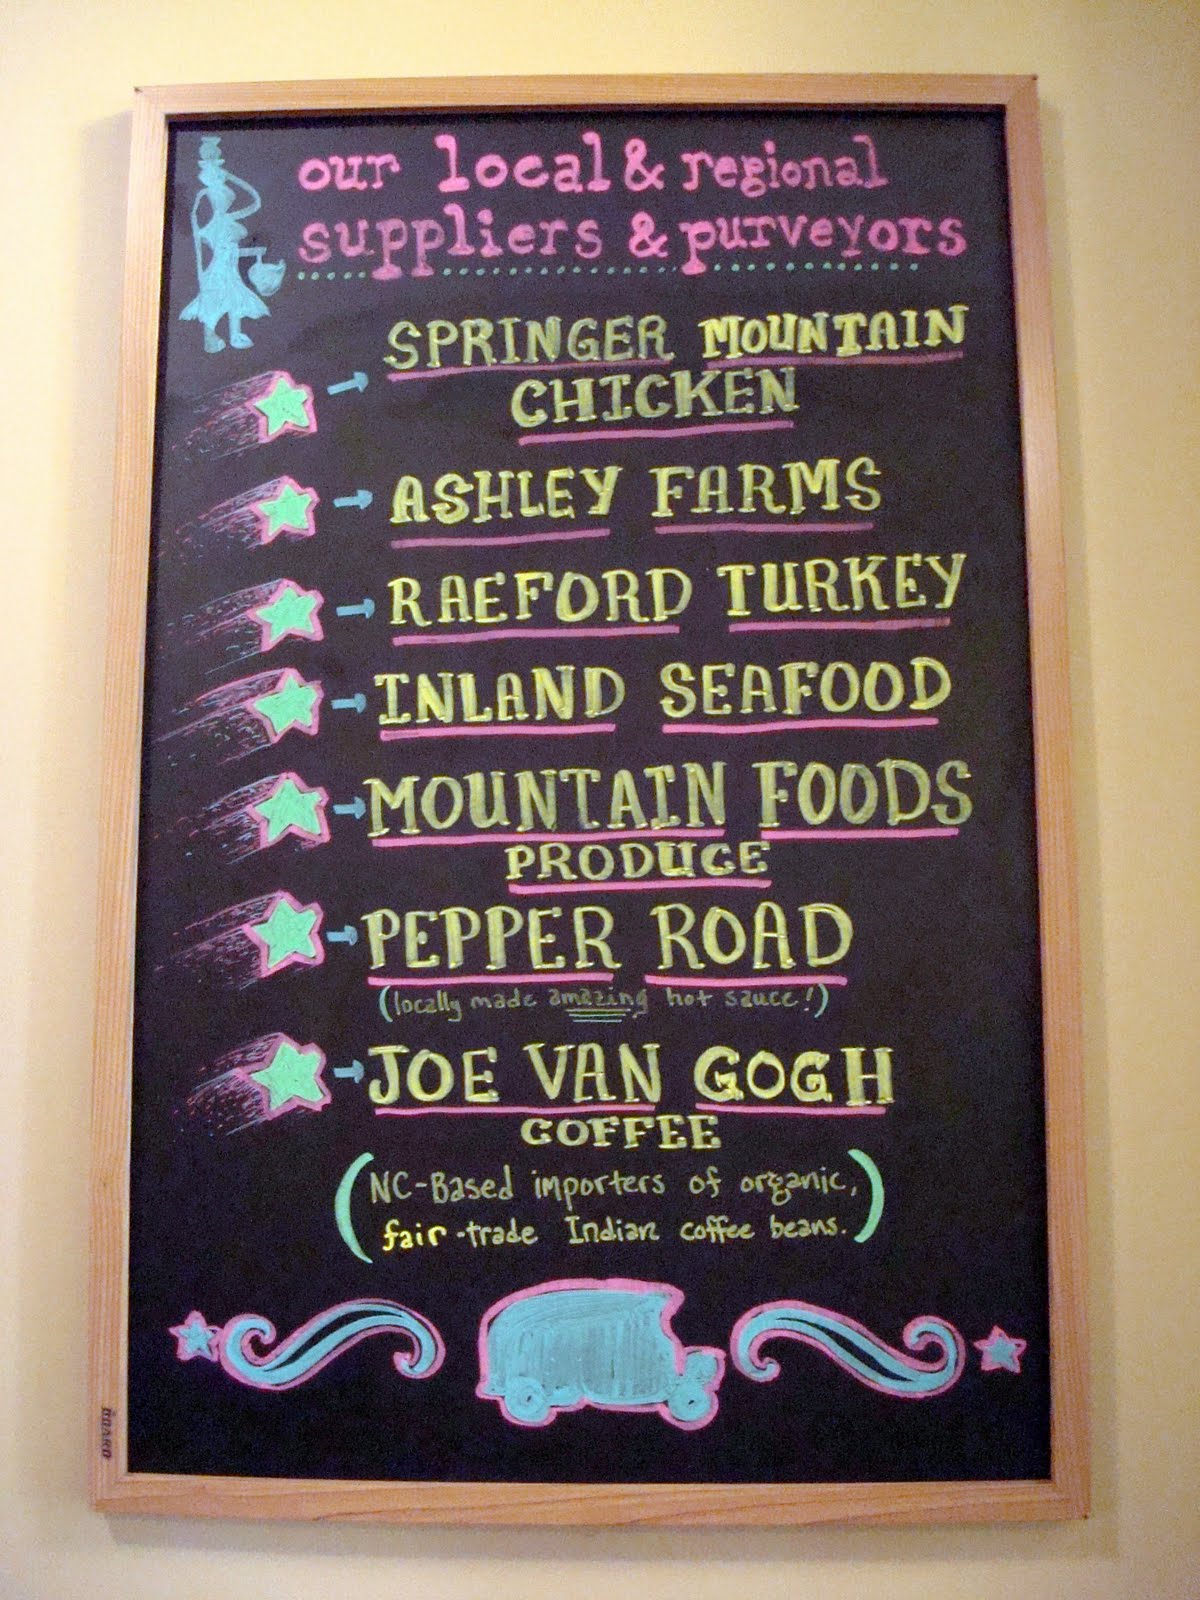 our local & regional
suppliers & purveyors
SPRINGER MOUNTAIN
CHICKEN
ASHLEY FARMS
RAEFORD TURKEY
INLAND SEAFOOD
MOUNTAIN FOODS
PRODUCE
PEPPER ROAD
(locally made amazing hot sauce!)
JOE VAN GOGH
COFFEE
(NC-Based importers of organic,
fair-trade Indian coffee beans.)